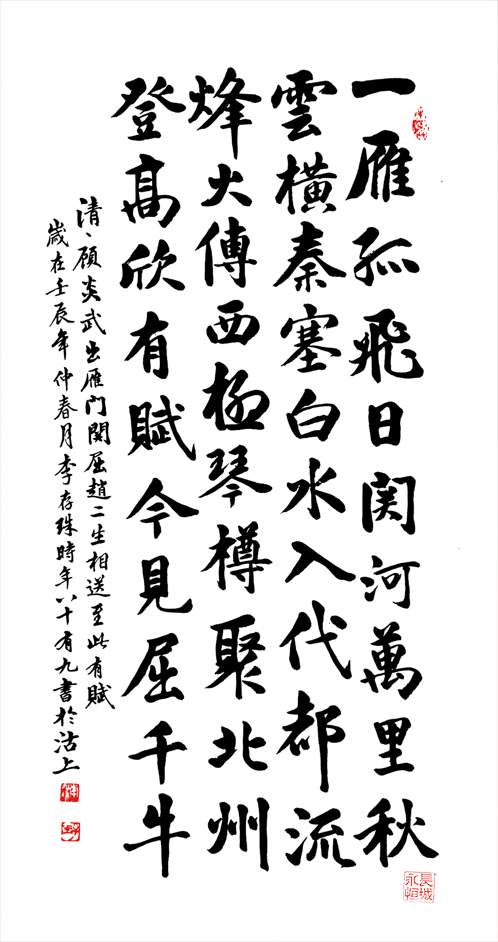 一雁孤飛日関河萬里秋
雲橫秦塞白水入代都流
烽火傳西極琴樽聚北州
登高欣有賦今見屈千牛
清、顾炎武出雁门関屈趙二生相送至此有賦
歲在壬辰年仲春月李存珠時年八十有九書於沽上
長城永恒